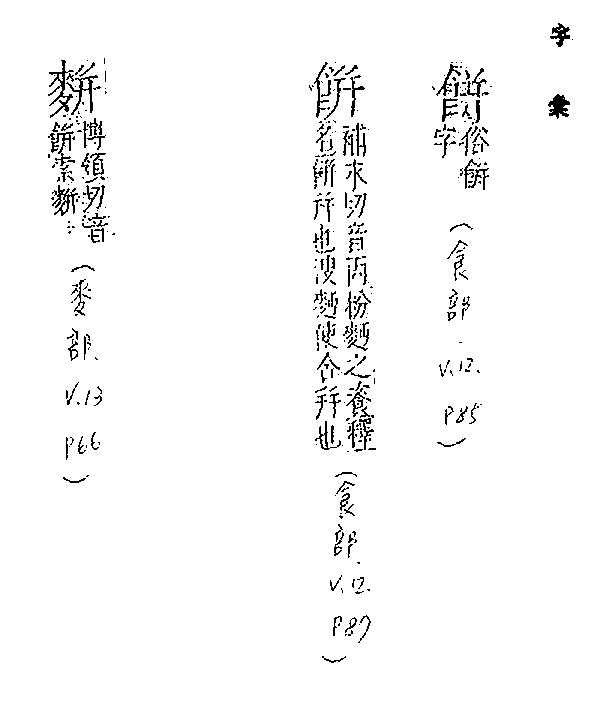 字彙
俗餅
字
(食部.V.12.P85)
餅
補永切音丙粉麵之餈釋
名餅并也溲麵使合并也
(食部.V.12.P87)
䴵
博領切音
餅索䴵
(麥部.V.13 P66)